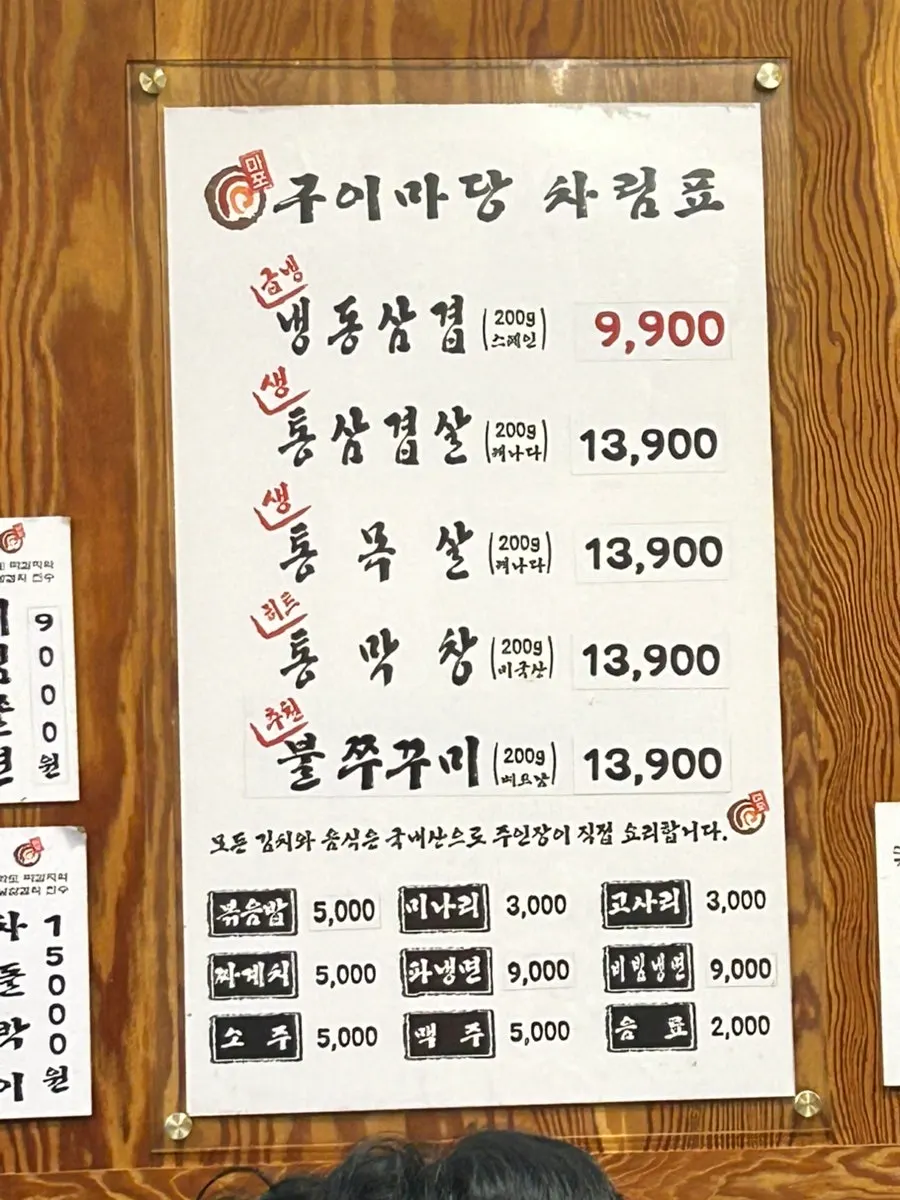 마포
구이마당 차림표
급냉
냉동삼겹 (200g 스페인) 9,900
생
통삼겹살 (200g 캐나다) 13,900
생
통목살 (200g 캐나다) 13,900
히트
통막창 (200g 미국산) 13,900
추천
불쭈꾸미 (200g 베트남) 13,900
모든 김치와 음식은 국내산으로 주인장이 직접 요리합니다.
볶음밥 5,000 미나리 3,000 고사리 3,000
찌계치 5,000 파냉면 9,000 비빔냉면 9,000
소주 5,000 맥주 5,000 음료 2,000
9000원
15000원